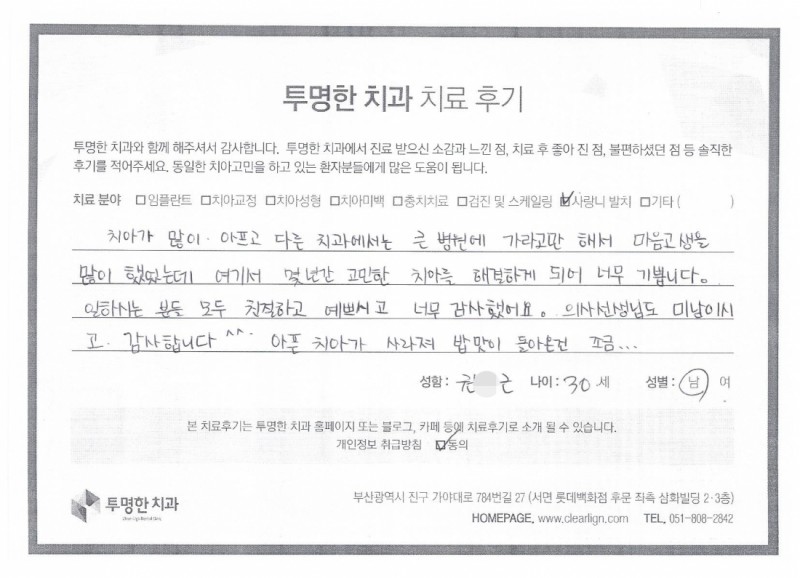 투명한 치과 치료 후기
투명한 치과와 함께 해주셔서 감사합니다. 투명한 치과에서 진료 받으신 소감과 느낀 점, 치료 후 좋아 진 점, 불편하셨던 점 등 솔직한
후기를 적어주세요. 동일한 치아고민을 하고 있는 환자분들에게 많은 도움이 됩니다.
치료 분야 □임플란트 □치아교정 □치아성형 □치아미백 □충치치료 □검진 및 스케일링 ☑사랑니 발치 □기타 ( )
치아가 많이 아프고 다른 치과에서는 큰 병원에 가라고만 해서 마음고생을
많이 했었는데 여기서 몇년간 고민한 치아를 해결하게 되어 너무 기쁩니다.
일하시는 분들 모두 친절하고 예쁘시고 너무 감사했어요. 의사선생님도 미남이시
고. 감사합니다 ^^. 아픈 치아가 사라져 밥맛이 돌아온건 조금...
성함: 권 근 나이: 30 세 성별: 남, 여
본 치료후기는 투명한 치과 홈페이지 또는 블로그, 카페 등에 치료후기로 소개 될 수 있습니다.
개인정보 취급방침 ☑동의
투명한 치과
부산광역시 진구 가야대로 784번길 27 (서면 롯데백화점 후문 좌측 삼화빌딩 2·3층)
HOMEPAGE. www.clearlign.com TEL. 051-808-2842